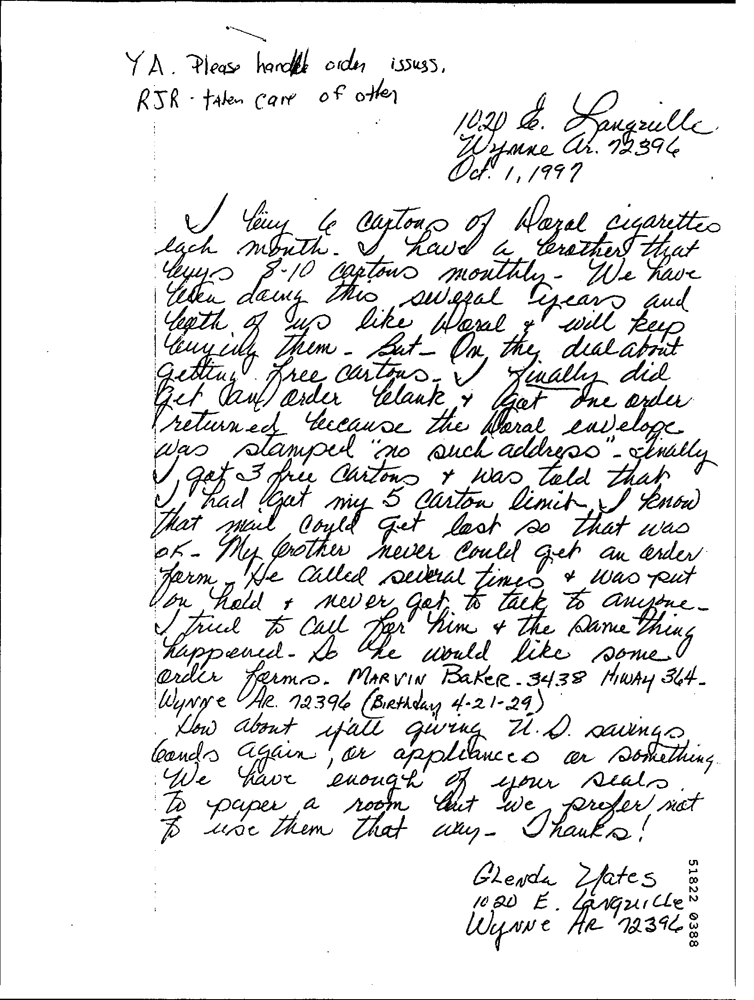 YA. Please handle order issues.
RJR - taken care of other
1020 E. Languille
Wynne Ar. 72396
Oct. 1, 1997
I buy 6 cartons of Doral cigarettes
each month. I have a brother that
buys 8-10 cartons monthly - We have
been doing this several years and
both of us like Doral & will keep
buying them - But - On the deal about
getting free cartons - I finally did
get an order blank & got one order
returned because the Doral envelope
was stamped "no such address" - Finally
I got 3 free cartons & was told that
I had got my 5 carton limit. I know
that mail could get lost so that was
OK - My brother never could get an order
form - He called several times & was put
on hold & never got to talk to anyone -
I tried to call for him & the same thing
happened - So he would like some
order forms. MARVIN BAKER - 3438 HIWAY 364 -
Wynne AR. 72396 (Birthday 4-21-29)
How about y'all giving U.S. savings
bonds again, or appliances or something.
We have enough of your seals
to paper a room but we prefer not
to use them that way - Thanks!
Glenda Yates
1020 E. Languille
Wynne AR 72396
51822 0388